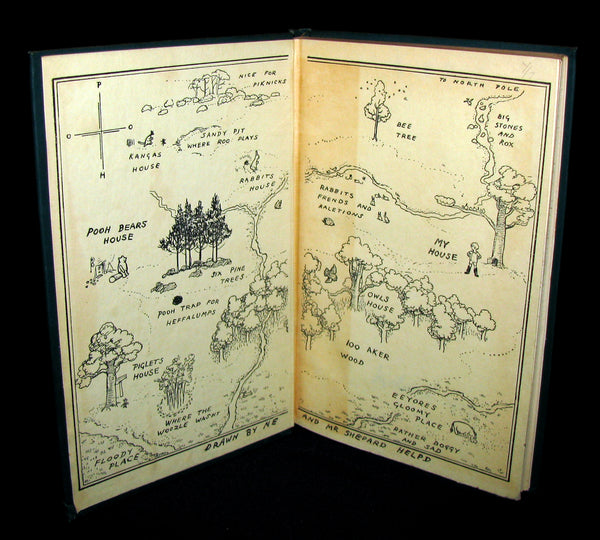 NICE FOR
PIKNICKS
P
O
O
H
SANDY PIT
WHERE ROO PLAYS
KANGAS
HOUSE
RABBITS
HOUSE
POOH BEARS
HOUSE
SIX PINE
TREES
POOH TRAP FOR
HEFFALUMPS
PIGLETS
HOUSE
WHERE THE
WOOZLE WASNT
FLOODY
PLACE
DRAWN BY ME
TO NORTH POLE
BIG
STONES
AND
ROX
BEE
TREE
RABBITS
FRENDS AND
RALETIONS
MY
HOUSE
OWLS
HOUSE
100 AKER
WOOD
EEYORES
GLOOMY
PLACE
RATHER BOGGY
AND SAD
AND MR SHEPARD HELPD